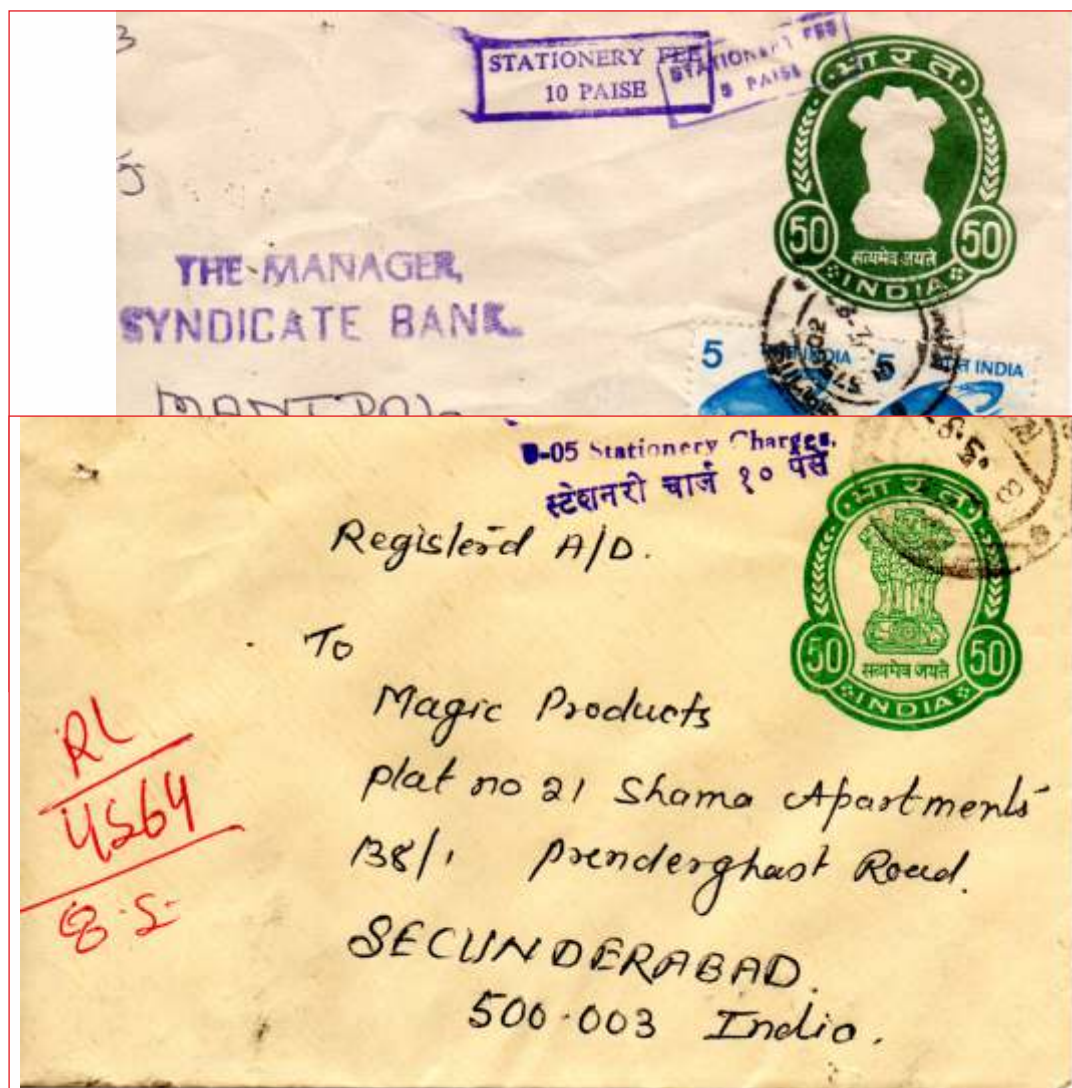 3
STATIONERY FEE
10 PAISE
STATIONERY FEE
5 PAISE
भारत
50 50
सत्यमेव जयते
INDIA
THE MANAGER,
SYNDICATE BANK.
5 INDIA 5 INDIA
-05 Stationery Charges.
स्टेशनरी चार्ज १० पैसे
भारत
50 50
सत्यमेव जयते
INDIA
Registerd A/D.
To
Magic Products
plat no 21 Shama Apartments
138/1 Prenderghast Road.
SECUNDERABAD.
500-003 India.
RL
4564